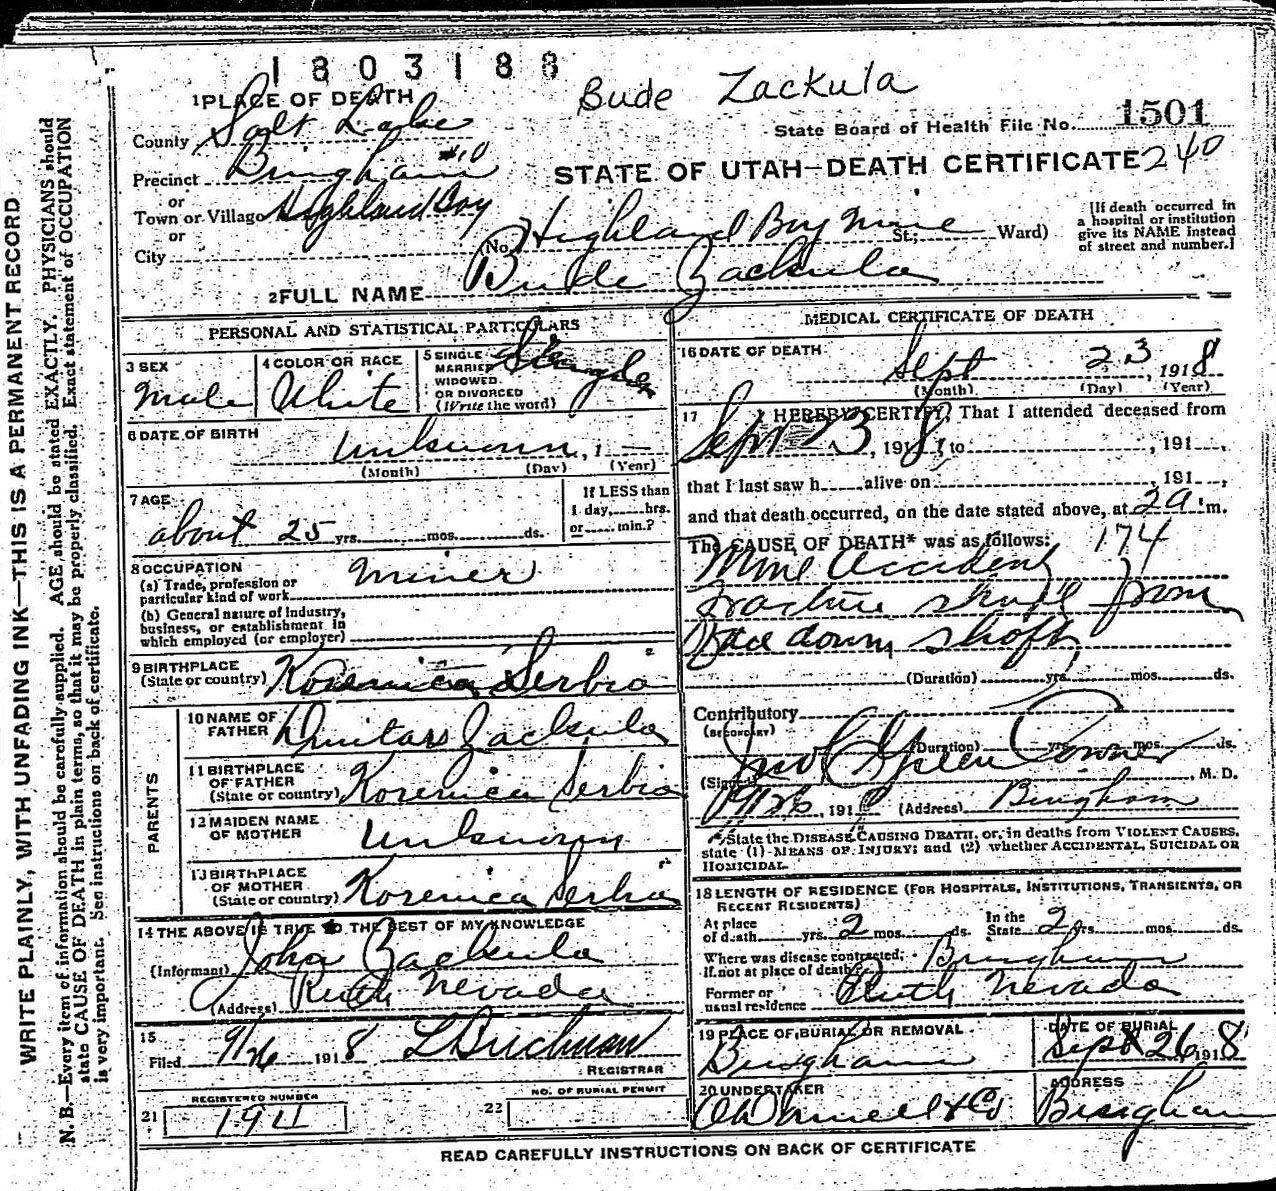 1803188
Bude Zackula
1 PLACE OF DEATH
County Salt Lake
State Board of Health File No. 1501
Precinct Bingham #10
STATE OF UTAH—DEATH CERTIFICATE 240
or
Town or Village Highland Boy
or
City
(No. Highland Boy Mine St.; Ward)
[If death occurred in a hospital or institution give its NAME instead of street and number.]
2 FULL NAME Bude Zackula
PERSONAL AND STATISTICAL PARTICULARS
3 SEX Male
4 COLOR OR RACE White
5 SINGLE MARRIED WIDOWED OR DIVORCED (Write the word) Single
6 DATE OF BIRTH Unknown, 1
(Month) (Day) (Year)
7 AGE about 25 yrs. mos. ds.
If LESS than 1 day, hrs. or min.?
8 OCCUPATION
(a) Trade, profession or particular kind of work Miner
(b) General nature of industry, business, or establishment in which employed (or employer)
9 BIRTHPLACE (State or country) Korenica Serbia
PARENTS
10 NAME OF FATHER Dmitar Zackula
11 BIRTHPLACE OF FATHER (State or country) Korenica Serbia
12 MAIDEN NAME OF MOTHER Unknown
13 BIRTHPLACE OF MOTHER (State or country) Korenica Serbia
14 THE ABOVE IS TRUE TO THE BEST OF MY KNOWLEDGE
(Informant) John Zackula
(Address) Ruth Nevada
15
Filed 9/26 1918
REGISTRAR
REGISTERED NUMBER
21
22 NO. OF BURIAL PERMIT
MEDICAL CERTIFICATE OF DEATH
16 DATE OF DEATH Sept 23, 1918
(Month) (Day) (Year)
17 I HEREBY CERTIFY, That I attended deceased from
Sept 23, 1918, to , 191 ,
that I last saw h alive on , 191 ,
and that death occurred, on the date stated above, at 2 a. m.
The CAUSE OF DEATH* was as follows: 174
Mine Accident
Fracture skull from
down shaft
(Duration) yrs. mos. ds.
Contributory (SECONDARY)
(Duration) yrs. mos. ds.
(Signed) Green Coroner, M. D.
9/26, 1918 (Address) Bingham
*State the DISEASE CAUSING DEATH, or, in deaths from VIOLENT CAUSES, state (1) MEANS OF INJURY; and (2) whether ACCIDENTAL, SUICIDAL OR HOMICIDAL.
18 LENGTH OF RESIDENCE (FOR HOSPITALS, INSTITUTIONS, TRANSIENTS, OR RECENT RESIDENTS)
At place of death yrs. 2 mos. ds. In the State 2 yrs. mos. ds.
Where was disease contracted, if not at place of death? Bingham
Former or usual residence Ruth Nevada
19 PLACE OF BURIAL OR REMOVAL Bingham
DATE OF BURIAL Sept 26 1918
20 UNDERTAKER
ADDRESS Bingham
READ CAREFULLY INSTRUCTIONS ON BACK OF CERTIFICATE
WRITE PLAINLY, WITH UNFADING INK—THIS IS A PERMANENT RECORD
N. B.—Every item of information should be carefully supplied. AGE should be stated EXACTLY. PHYSICIANS should
state CAUSE OF DEATH in plain terms, so that it may be properly classified. Exact statement of OCCUPATION
is very important. See instructions on back of certificate.